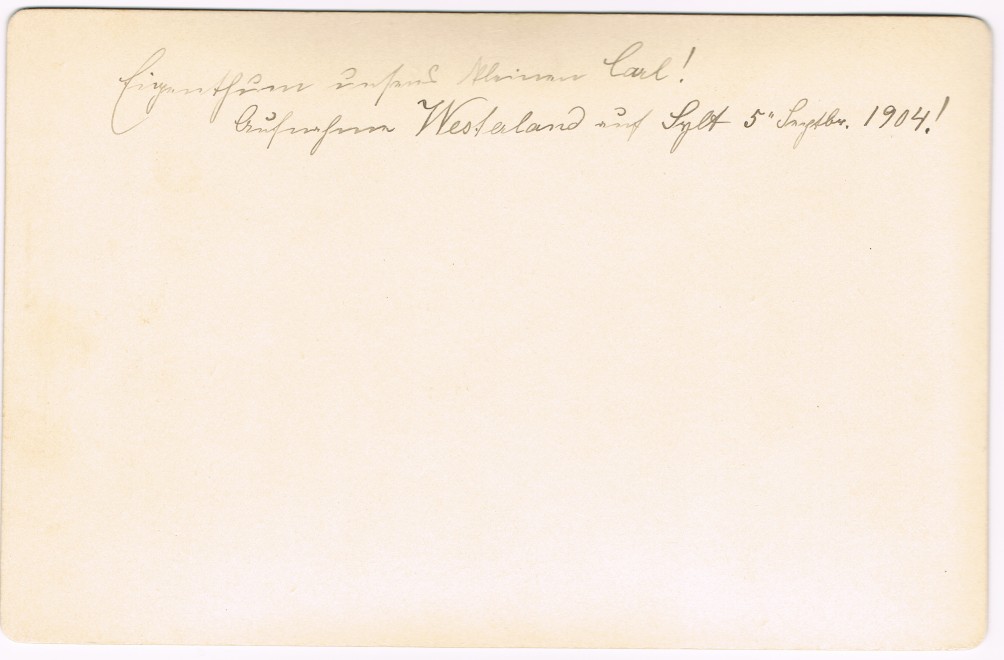 Eigenthum unsers kleinen Carl!
Aufnahme Westerland auf Sylt 5" Septbr. 1904!